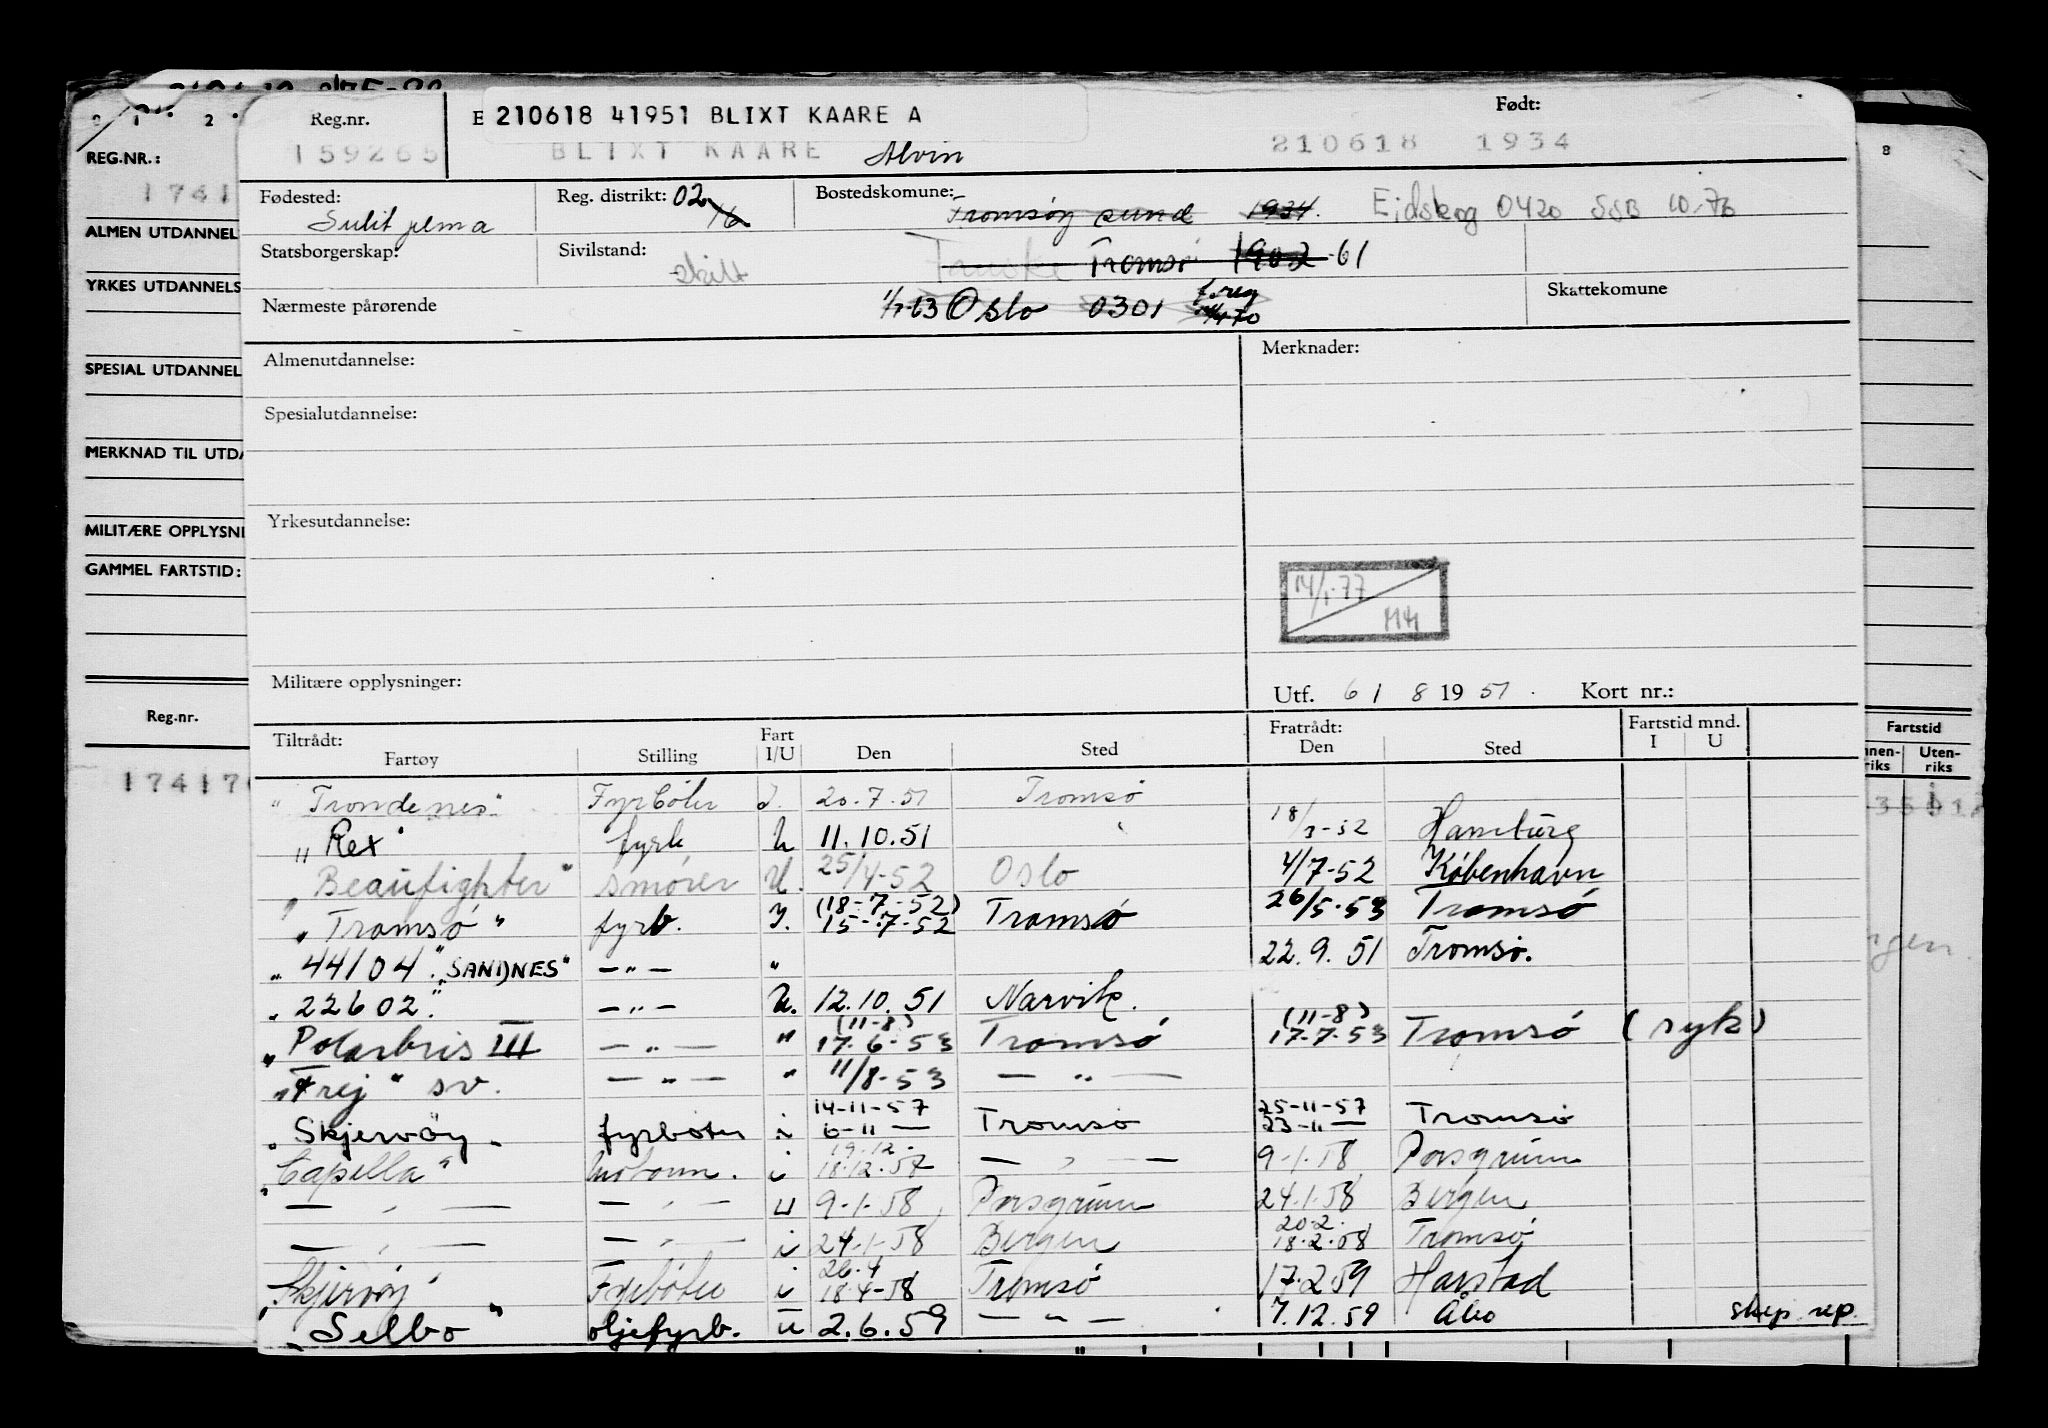 0 1 2
Reg.nr. E 210618 41951 BLIXT KAARE A Født:
159265 BLIXT KAARE Alvin 210618 1934
REG.NR.: 8
1741
Fødested: Reg. distrikt: 02 16 Bostedskomune: Tromsøysund 1934. Eidskog 0420 SSB 10-76
Sulitjelma
ALMEN UTDANNEL
Statsborgerskap: Sivilstand: skilt Fauske Tromsø 1902 -61
YRKES UTDANNELS
Nærmeste pårørende 1/7-63 Oslo 0301 Skattekomune
Almenutdannelse: Merknader:
SPESIAL UTDANNEL
Spesialutdannelse:
MERKNAD TIL UTDA
Yrkesutdannelse:
MILITÆRE OPPLYSNI
GAMMEL FARTSTID:
14/1-77
Militære opplysninger: Utf. 6 / 8 19 51. Kort nr.:
Reg.nr.
Tiltrådt: Fart Fratrådt: Fartstid mnd. Fartstid
Fartøy Stilling I/U Den Sted Den Sted I U nnen-riks Uten-riks
174170
"Trondenes" Fyrbøter I. 20.7.51 Tromsø
"Rex" fyrb U 11.10.51 18/3-52 Hamburg
"Beaufighter" smører U. 25/4-52 Oslo 4/7-52 København
"Tromsø" fyrb. I. (18-7-52) 15-7-52 Tromsø 26/5-53 Tromsø
"44104" "SANDNES" —"— " 22.9.51 Tromsø.
"22602" —"— U. 12.10.51 Narvik.
"Polarbris III —"— " (11-8) 17-6-53 Tromsø (11-8) 17-7-53 Tromsø (syk)
"Frej" sv. —"— " 11/8-53 —"—
"Skjervøy" fyrbøter i 14-11-57 6-11— Tromsø 25-11-57 23-11— Tromsø
"Capella" i 19.12- 18.12.57 —"— 9-1-58 Porsgrunn
—"— —"— u 9-1-58 Porsgrunn 24.1.58 Bergen
—"— —"— i 24-1-58 Bergen 20.2. 18.2.58 Tromsø
Skjervøy" Fyrbøter i 26.4 18.4-58 Tromsø 17.2.59 Harstad
"Selbo" oljefyrb. u 2.6.59 —"— 7.12.59 Åbo skip. rep.